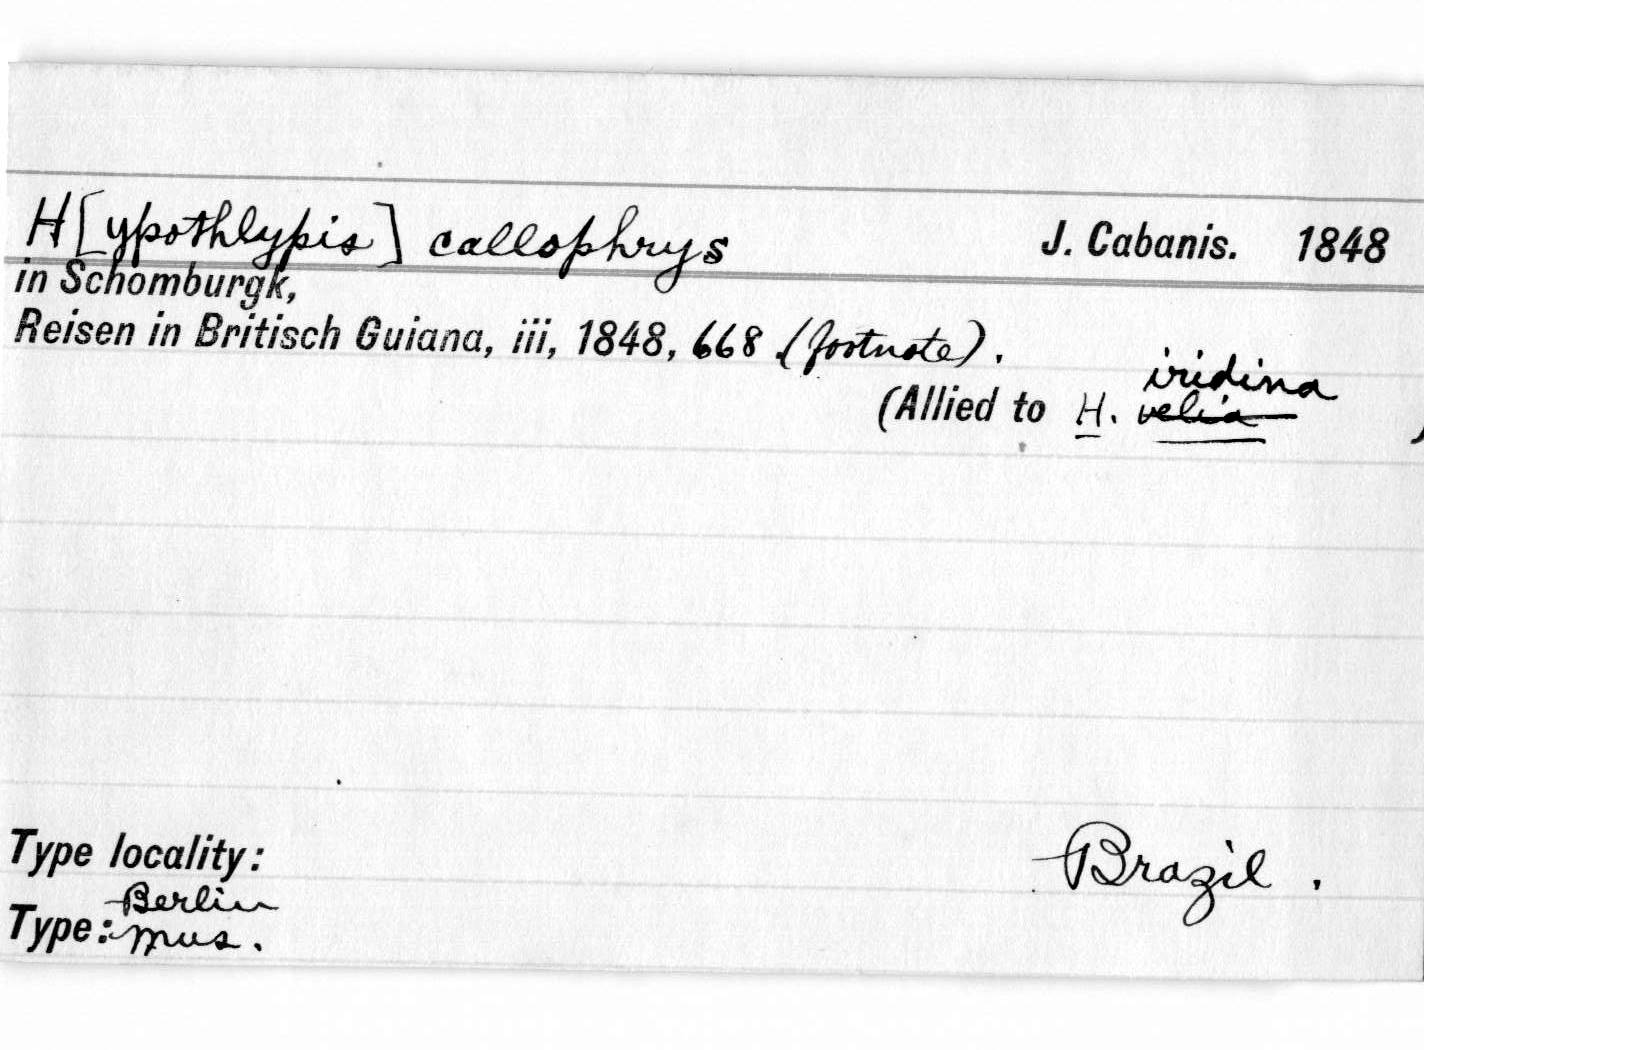 H[ypothlypis] callophrys J. Cabanis. 1848
in Schomburgk,
Reisen in Britisch Guiana, iii, 1848, 668 (footnote).
iridina
(Allied to H. velia )
Type locality: Brazil.
Berlin
Type: Mus.